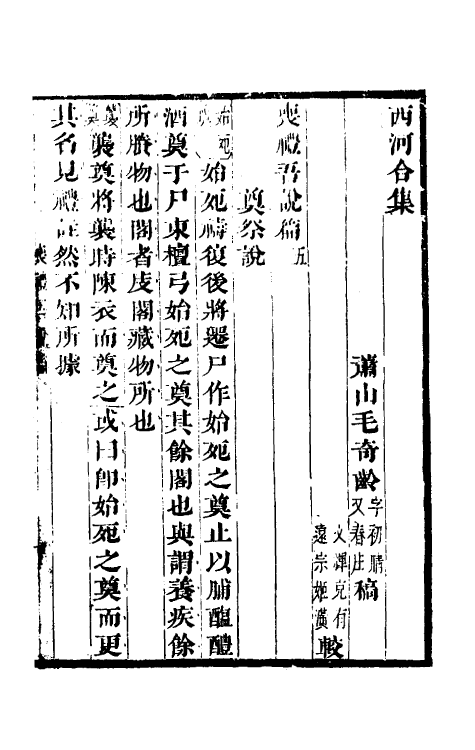 西河合集
蕭山毛奇齡字初晴又春庄稿
文輝克有遠宗姬潢較
喪禮吾說篇五
奠祭說
始死奠始死時復後將遷尸作始死之奠止以脯醢醴
酒奠于尸東檀弓始死之奠其餘閣也與謂養疾餘
所賸物也閣者庋閣藏物所也
襲奠襲奠將襲時陳衣而奠之或曰卽始死之奠而更
其名見禮註然不知所據